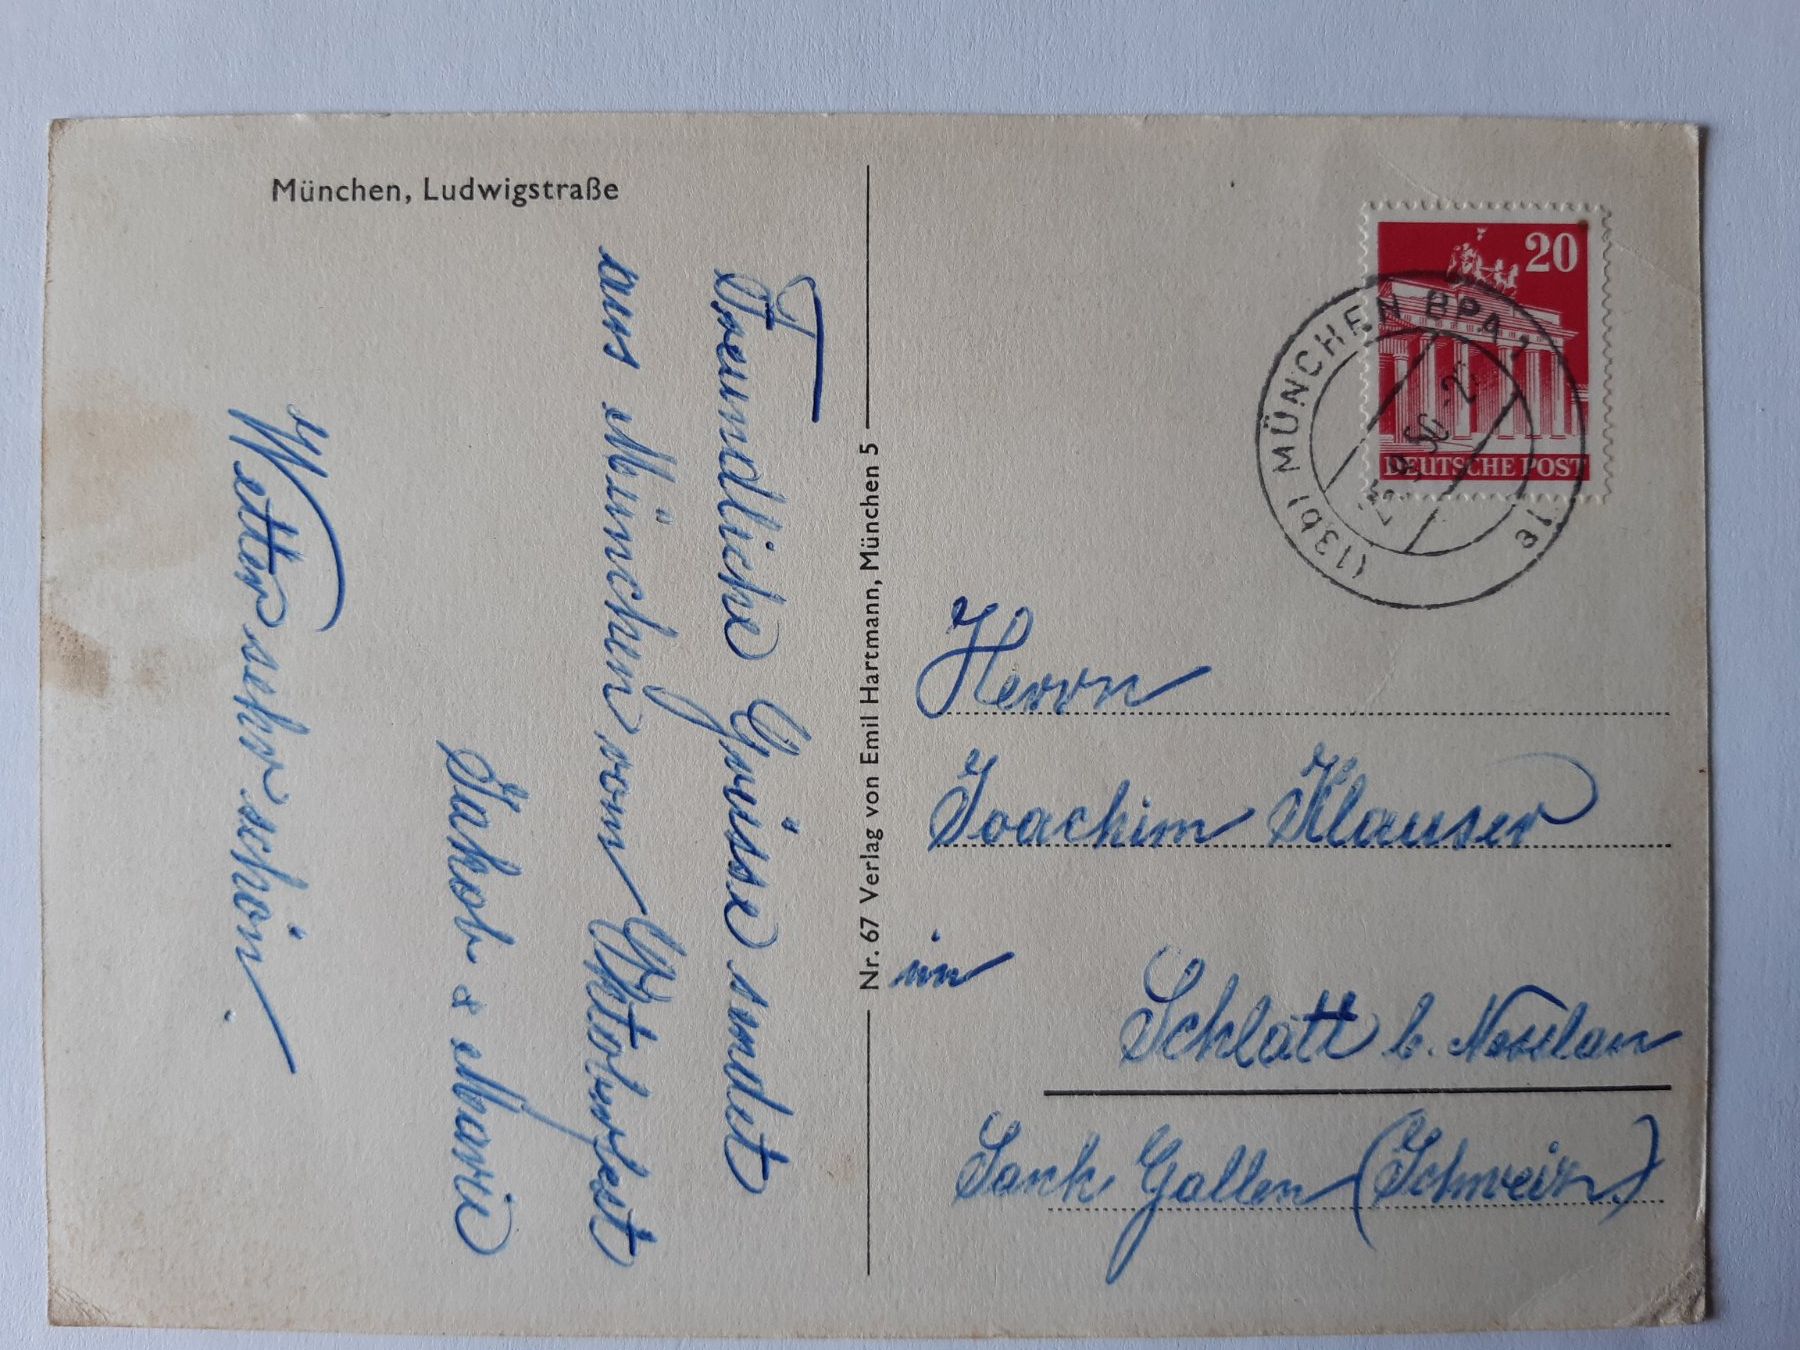 München, Ludwigstraße
Freundliche Grüsse sendet
aus München vom Oktobrfest
Jakob & Marie
Wetter sehr schön.
Nr. 67 Verlag von Emil Hartmann, München 5
20
DEUTSCHE POST
(13b) MÜNCHEN BPA 1
.50-20
Herrn
Joachim Klauser
im
Schlatt b. Nesslau
Sank Gallen (Schweiz.)